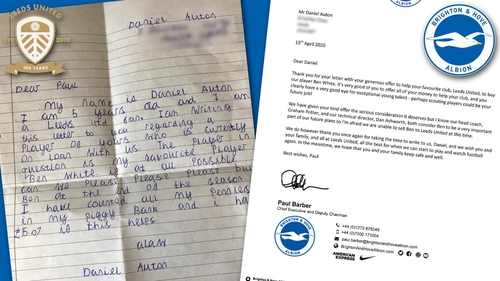 LEEDS UNITED
100 YEARS
Daniel Auton
Dear Paul
My Name is Daniel Auton
I am 5 years old and I am
a Leeds utd fan. I am Writing
this letter to you regarding a
Player of yours who is currently
on Loan With us The Player in
question is my favourite Player
Ben White is at all Possible
can We Please Please buy
Ben at the end of the season
I have counted all my Pennies
in my Piggy Bank and i have
£5.07 is this helps.
Daniel Auton
BRIGHTON & HOVE
ALBION
Mr Daniel Auton
15th April 2020
Dear Daniel
Thank you for your letter with your generous offer to help your favourite club, Leeds United, to buy
our player Ben White. It's very good of you to offer all of your money to help your club, and you
clearly have a very good eye for exceptional young talent - perhaps scouting players could be your
future job!
We have given your kind offer the serious consideration it deserves but I know our head coach,
Graham Potter, and our technical director, Dan Ashworth, both consider Ben to be a very important
part of our future plans so I'm afraid we are unable to sell Ben to Leeds United at this time.
We do however thank you once again for taking the time to write to us, Daniel, and we wish you and
your family, and all at Leeds United, all the best for when we can start to play and watch football
again. In the meantime, we hope that you and your family keep safe and well.
Best wishes, Paul
Paul Barber
Chief Executive and Deputy Chairman
BRIGHTON & HOVE
ALBION
+44 (0)1273 878249
+44 (0)7500 171004
paul.barber@brightonandhovealbion.com
BrightonAndHoveAlbion.com
AMERICAN
EXPRESS